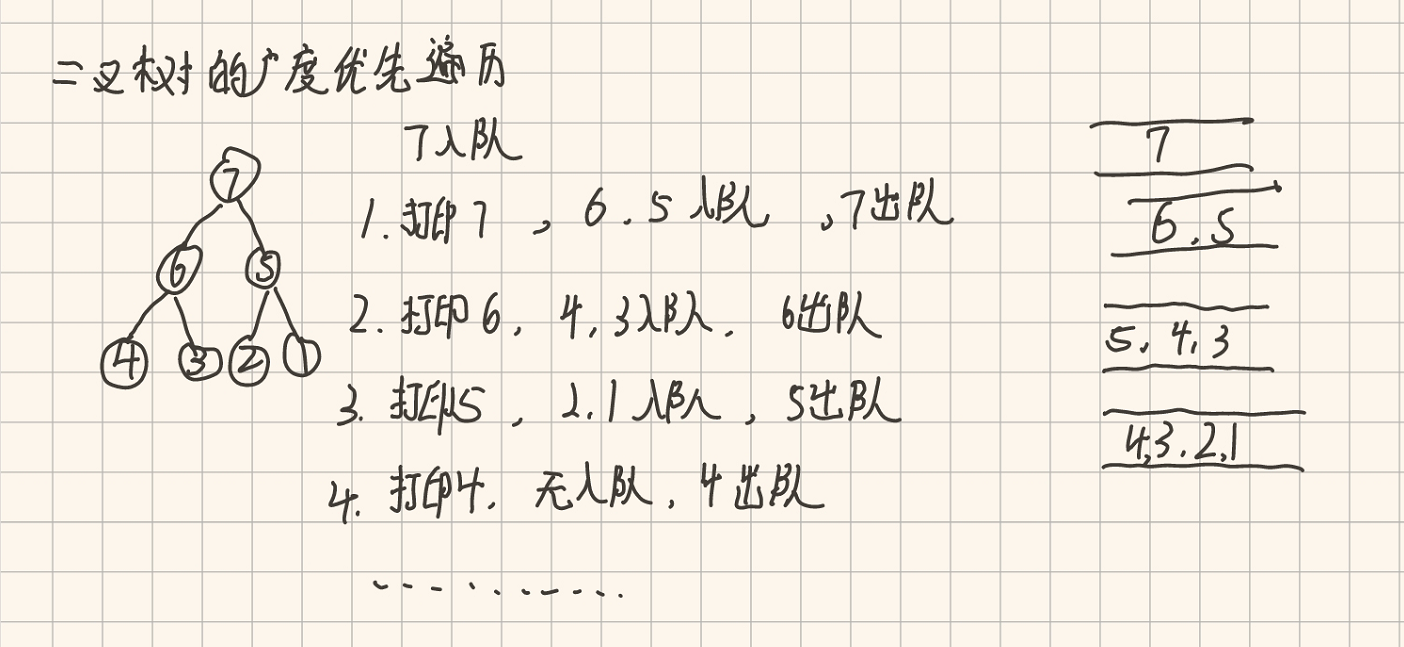 二叉树的广度优先遍历
7入队
1. 打印7 , 6.5入队 ,7出队
2. 打印6, 4,3入队. 6出队
3. 打印5, 2.1入队, 5出队
4. 打印4, 无入队, 4出队
..........
7
6 5
4 3 2 1
7
6.5
5. 4,3
4,3.2,1